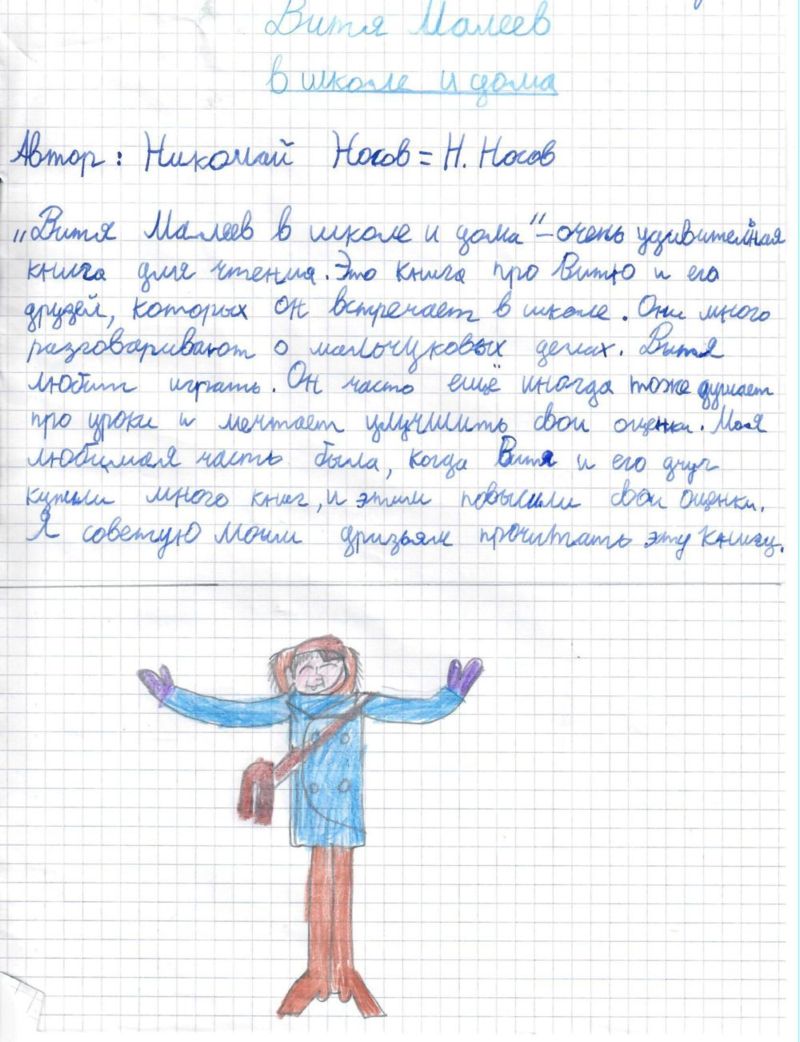 Витя Малеев
в школе и дома
Автор: Николай Носов = Н. Носов
„Витя Малеев в школе и дома" – очень удивительная
книга для чтения. Это книга про Витю и его
друзей, которых он встречает в школе. Они много
разговаривают о мальчуковых делах. Витя
любит играть. Он часто ещё иногда тоже думает
про уроки и мечтает улучшить свои оценки. Моя
любимая часть была, когда Витя и его друг
купили много книг, и этим повысили свои оценки.
Я советую моим друзьям прочитать эту книгу.